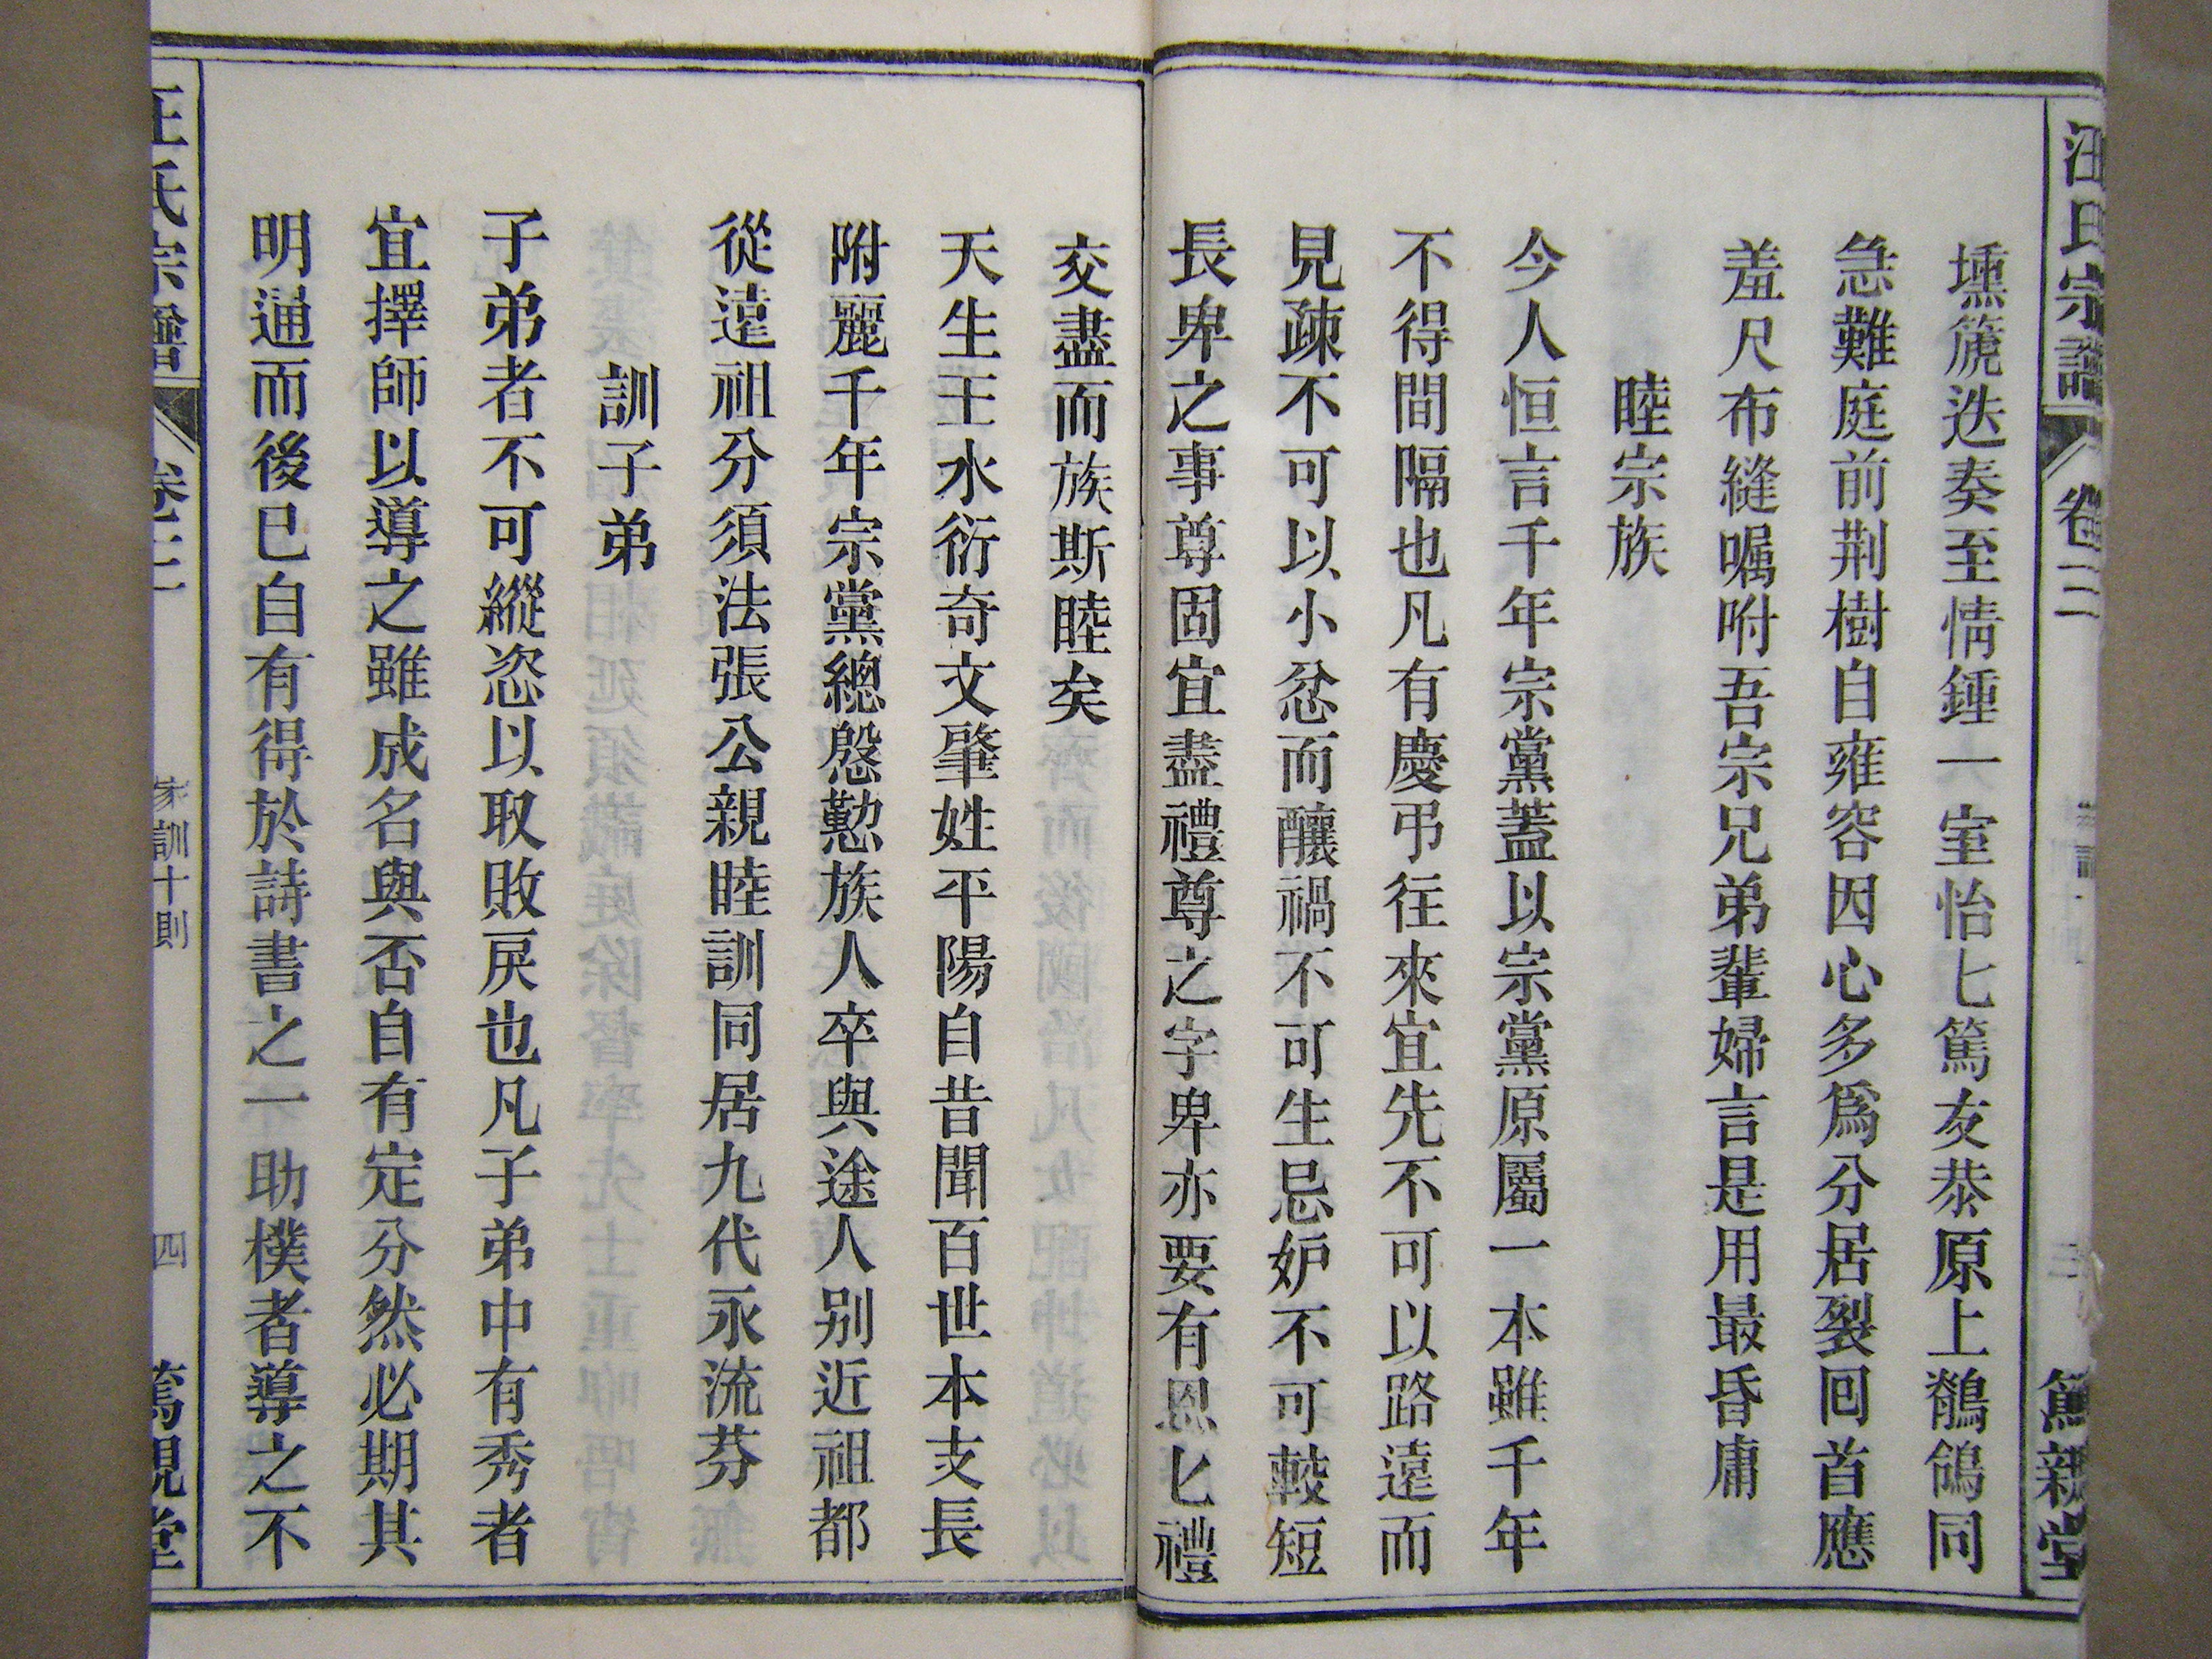 汪氏宗譜
卷三
三
篤親堂
壎篪迭奏至情鍾一室怡匕篤友恭原上鶺鴒同
急難庭前荆樹自雍容因心多爲分居裂囘首應
羞尺布縫囑咐吾宗兄弟輩婦言是用最昏庸
睦宗族
今人恒言千年宗黨蓋以宗黨原屬一本雖千年
不得間隔也凡有慶弔往來宜先不可以路遠而
見疎不可以小忿而釀禍不可生忌妒不可較短
長卑之事尊固宜盡禮尊之字卑亦要有恩匕禮
交盡而族斯睦矣
天生王水衍奇文肇姓平陽自昔聞百世本支長
附麗千年宗黨總慇懃族人卒與途人别近祖都
從遠祖分須法張公親睦訓同居九代永流芬
訓子弟
子弟者不可縱恣以取敗戾也凡子弟中有秀者
宜擇師以導之雖成名與否自有定分然必期其
明通而後已自有得於詩書之一助樸者導之不
汪氏宗譜
卷三
家訓十則
四
篤親堂